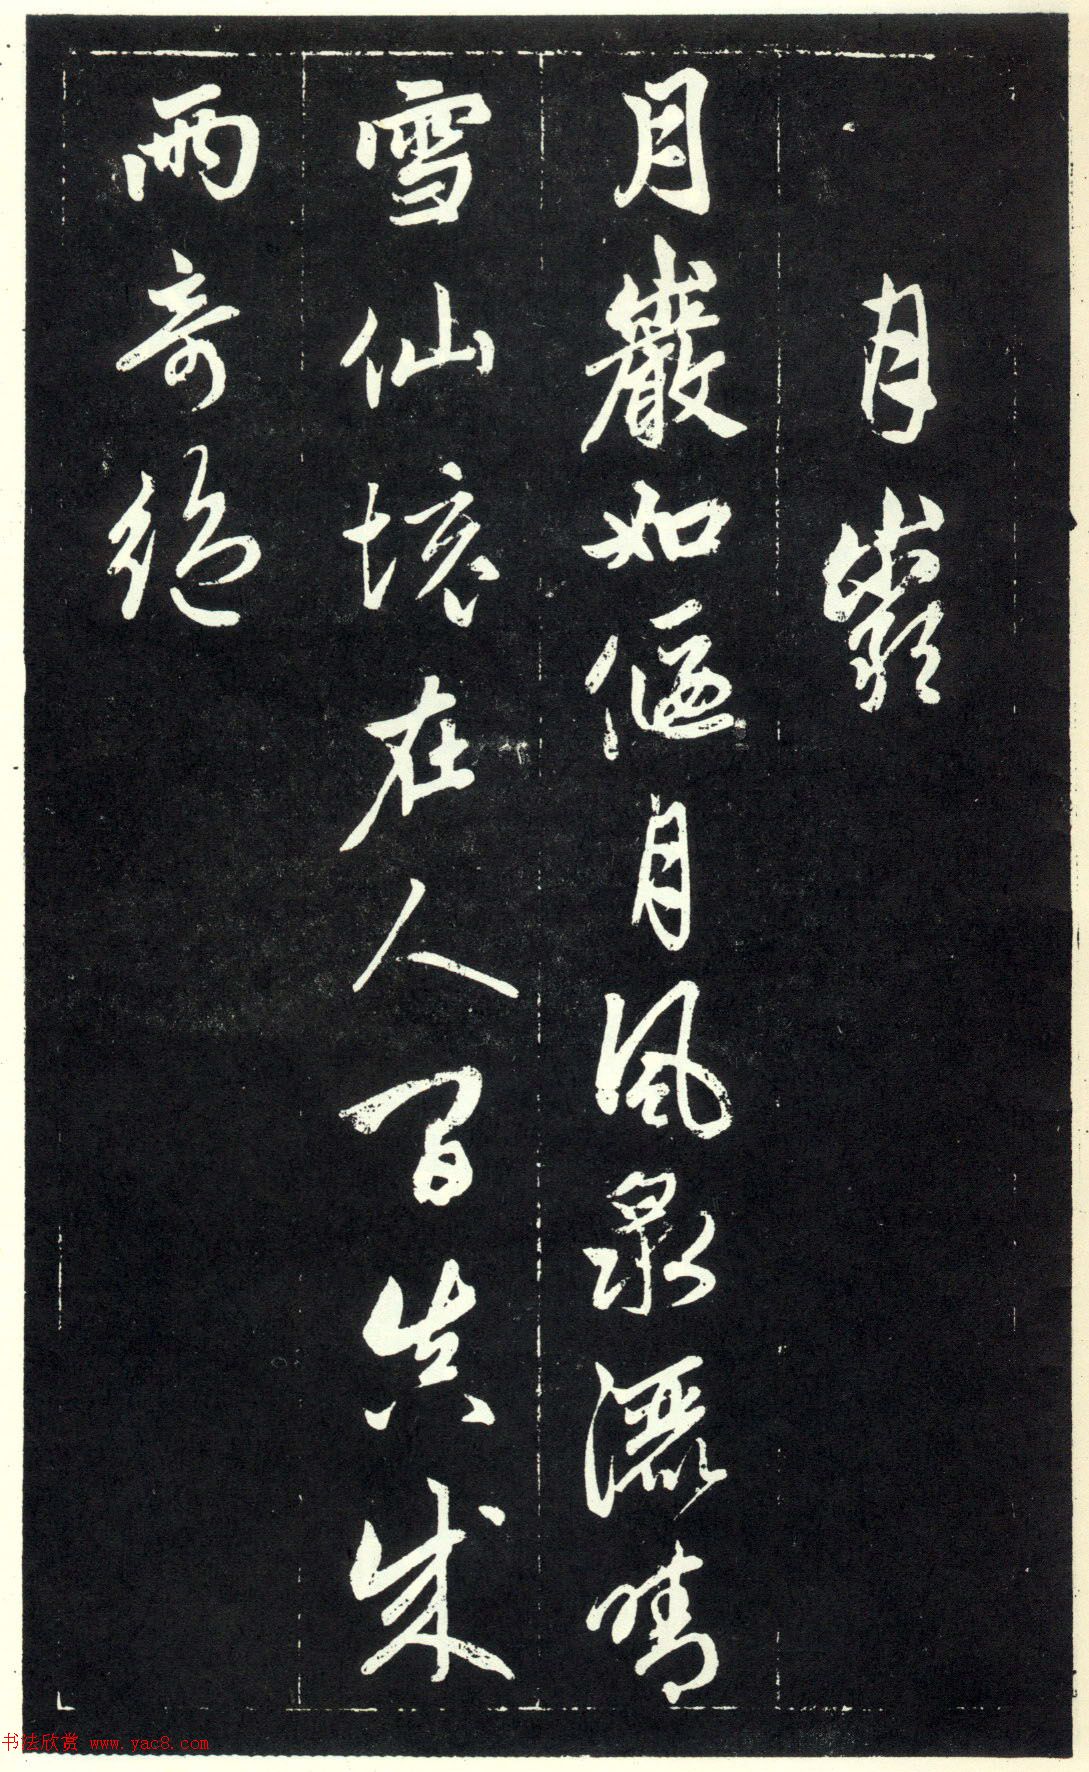 月巖
月巖如偃月風泉灑晴
雪仙境在人間真成
兩奇絕
书法欣赏 www.yac8.com